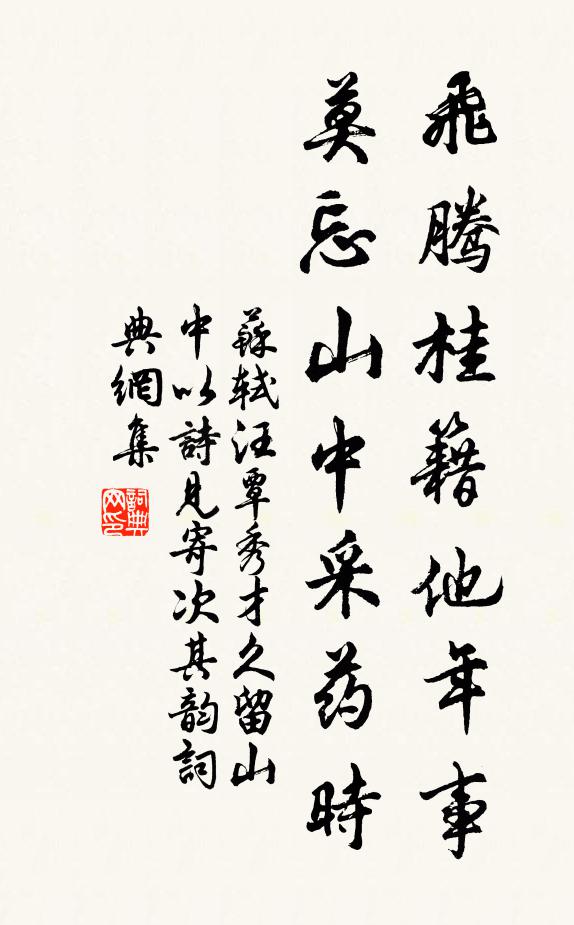 飛騰桂籍他年事
莫忘山中采药時
蘇軾汪覃秀才久留山
中以詩見寄次其韵詞
典網集
詞典
网印